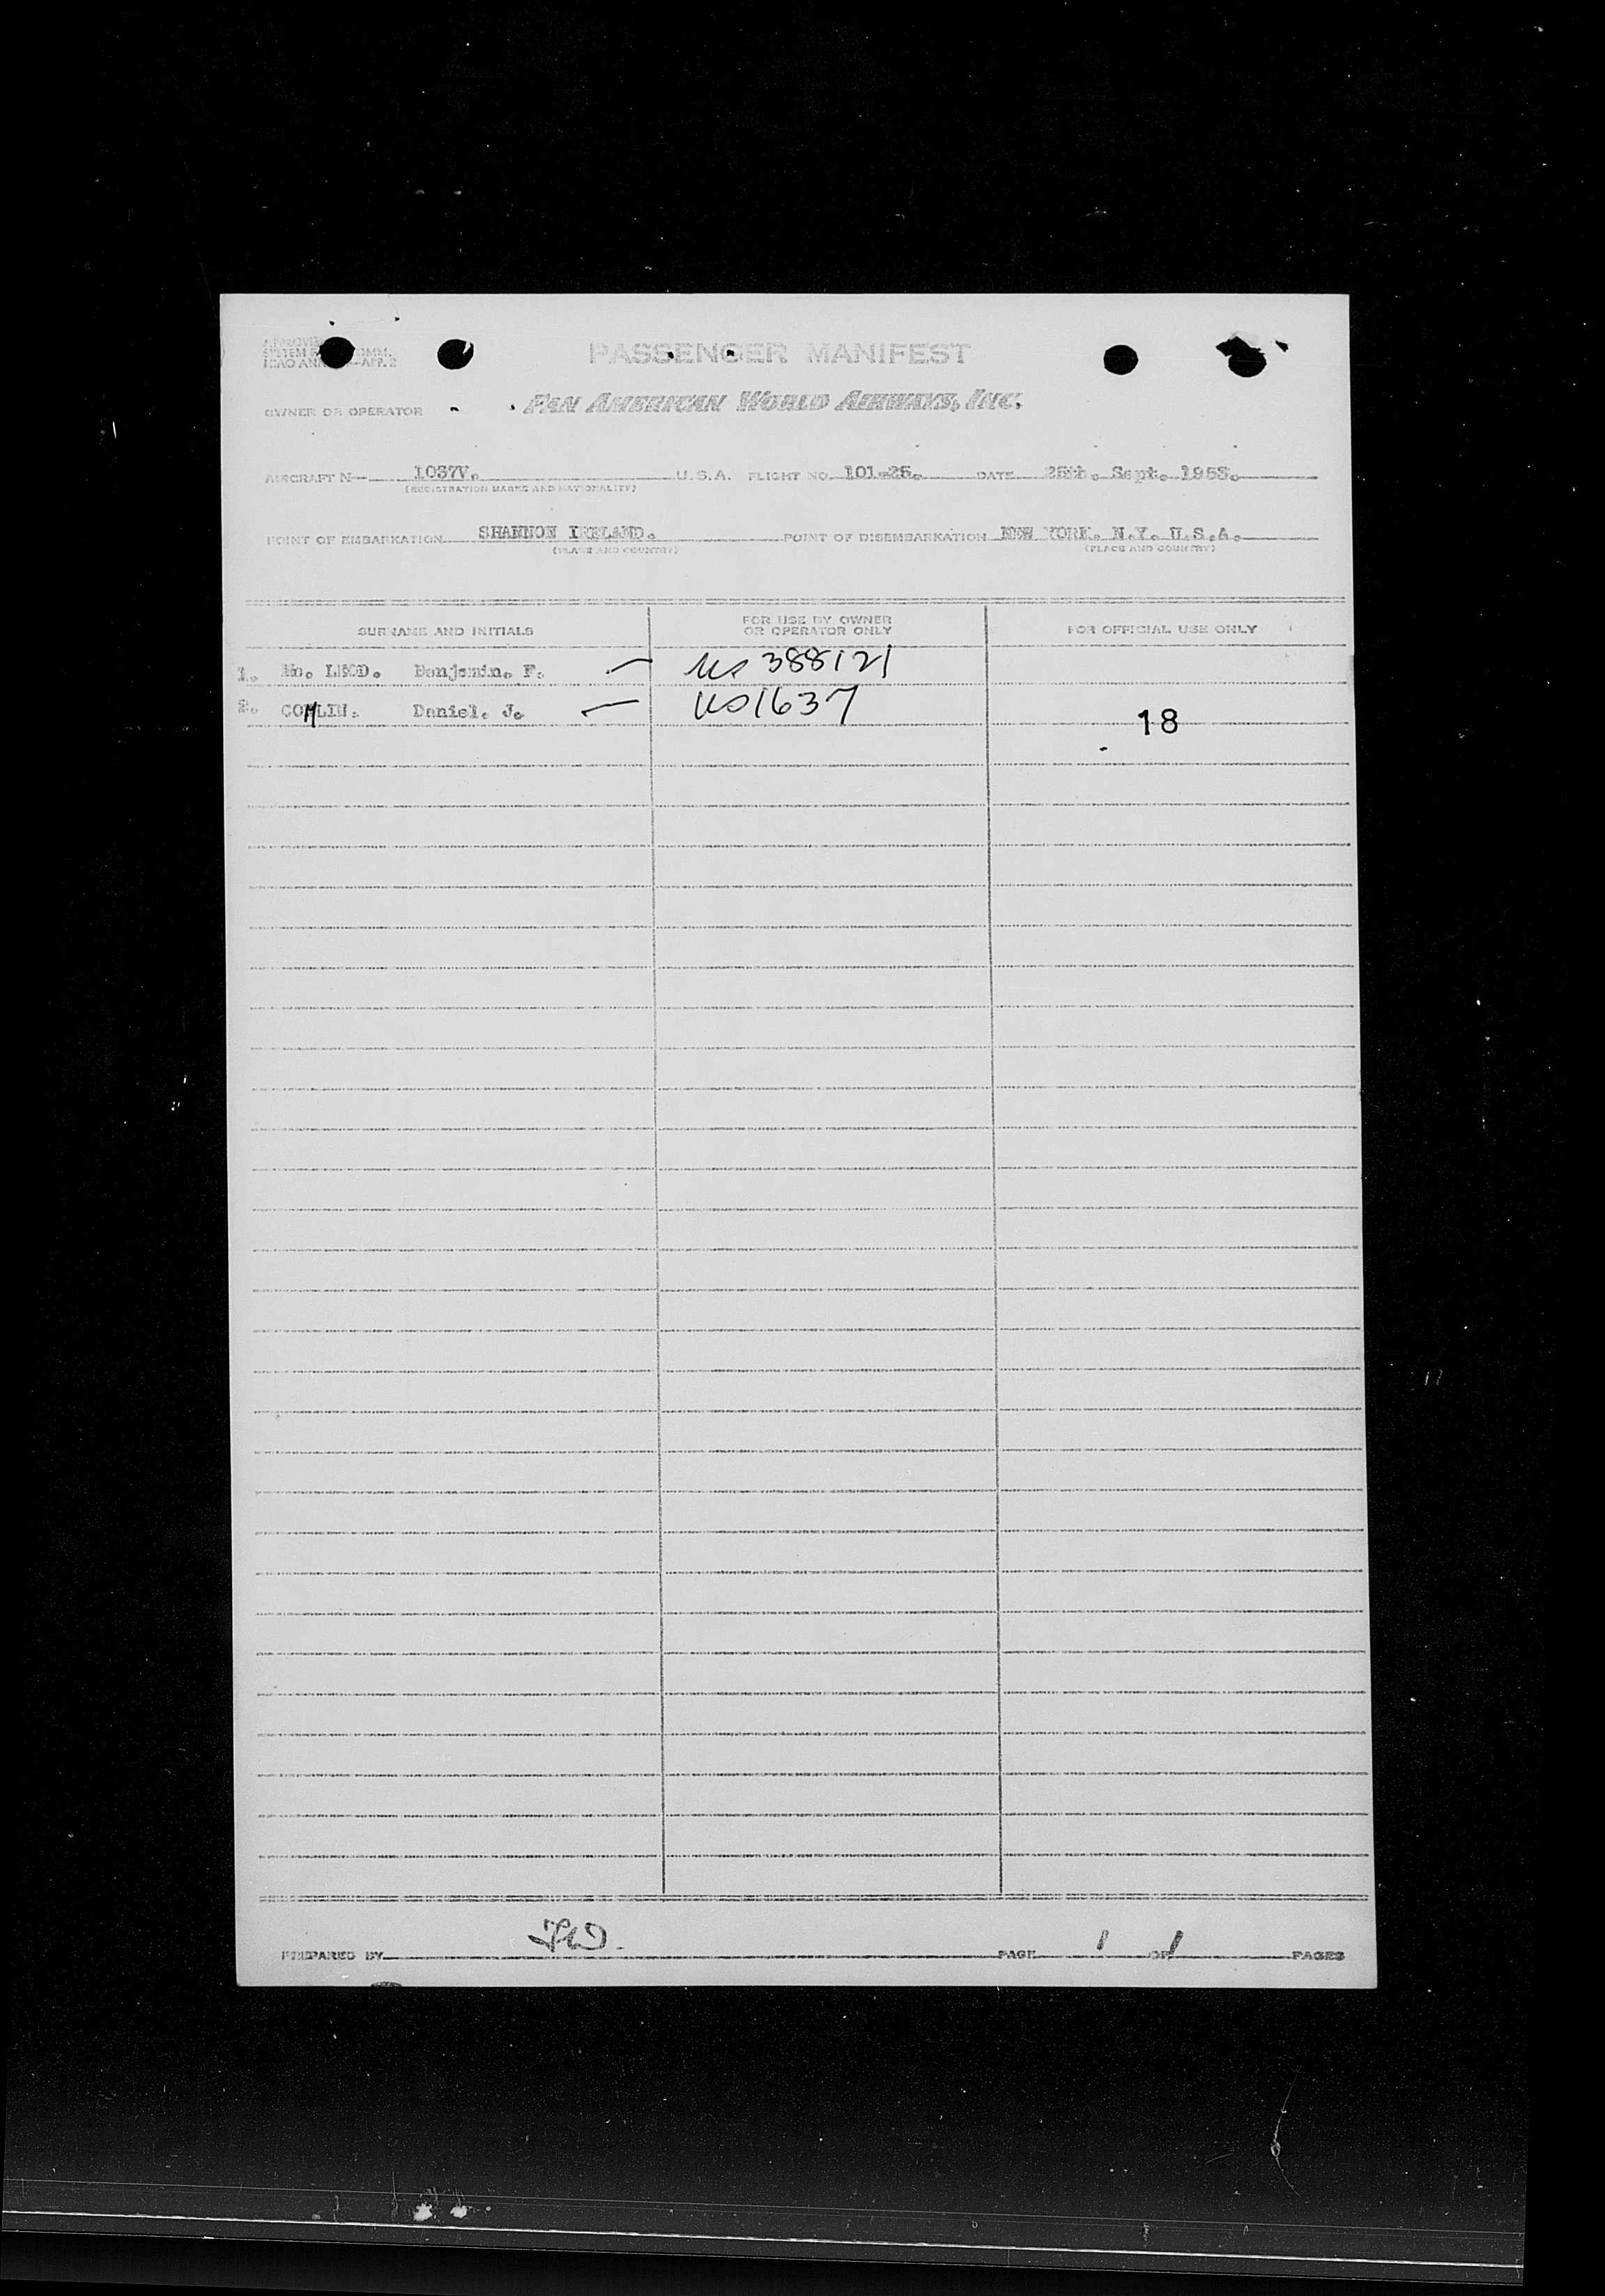 PASSENGER MANIFEST
OWNER OR OPERATOR PAN AMERICAN WORLD AIRWAYS, INC.
AIRCRAFT N- 1037V. U.S.A. FLIGHT NO. 101-25. DATE 25th. Sept. 1953.
(REGISTRATION MARKS AND NATIONALITY)
POINT OF EMBARKATION SHANNON IRELAND. POINT OF DISEMBARKATION NEW YORK. N.Y. U.S.A.
(PLACE AND COUNTRY) (PLACE AND COUNTRY)
SURNAME AND INITIALS FOR USE BY OWNER OR OPERATOR ONLY FOR OFFICIAL USE ONLY
1. Benjamin. F. — US 388121
2. Daniel. J. — US1637
18
PREPARED BY PAGE 1 OF 1 PAGES